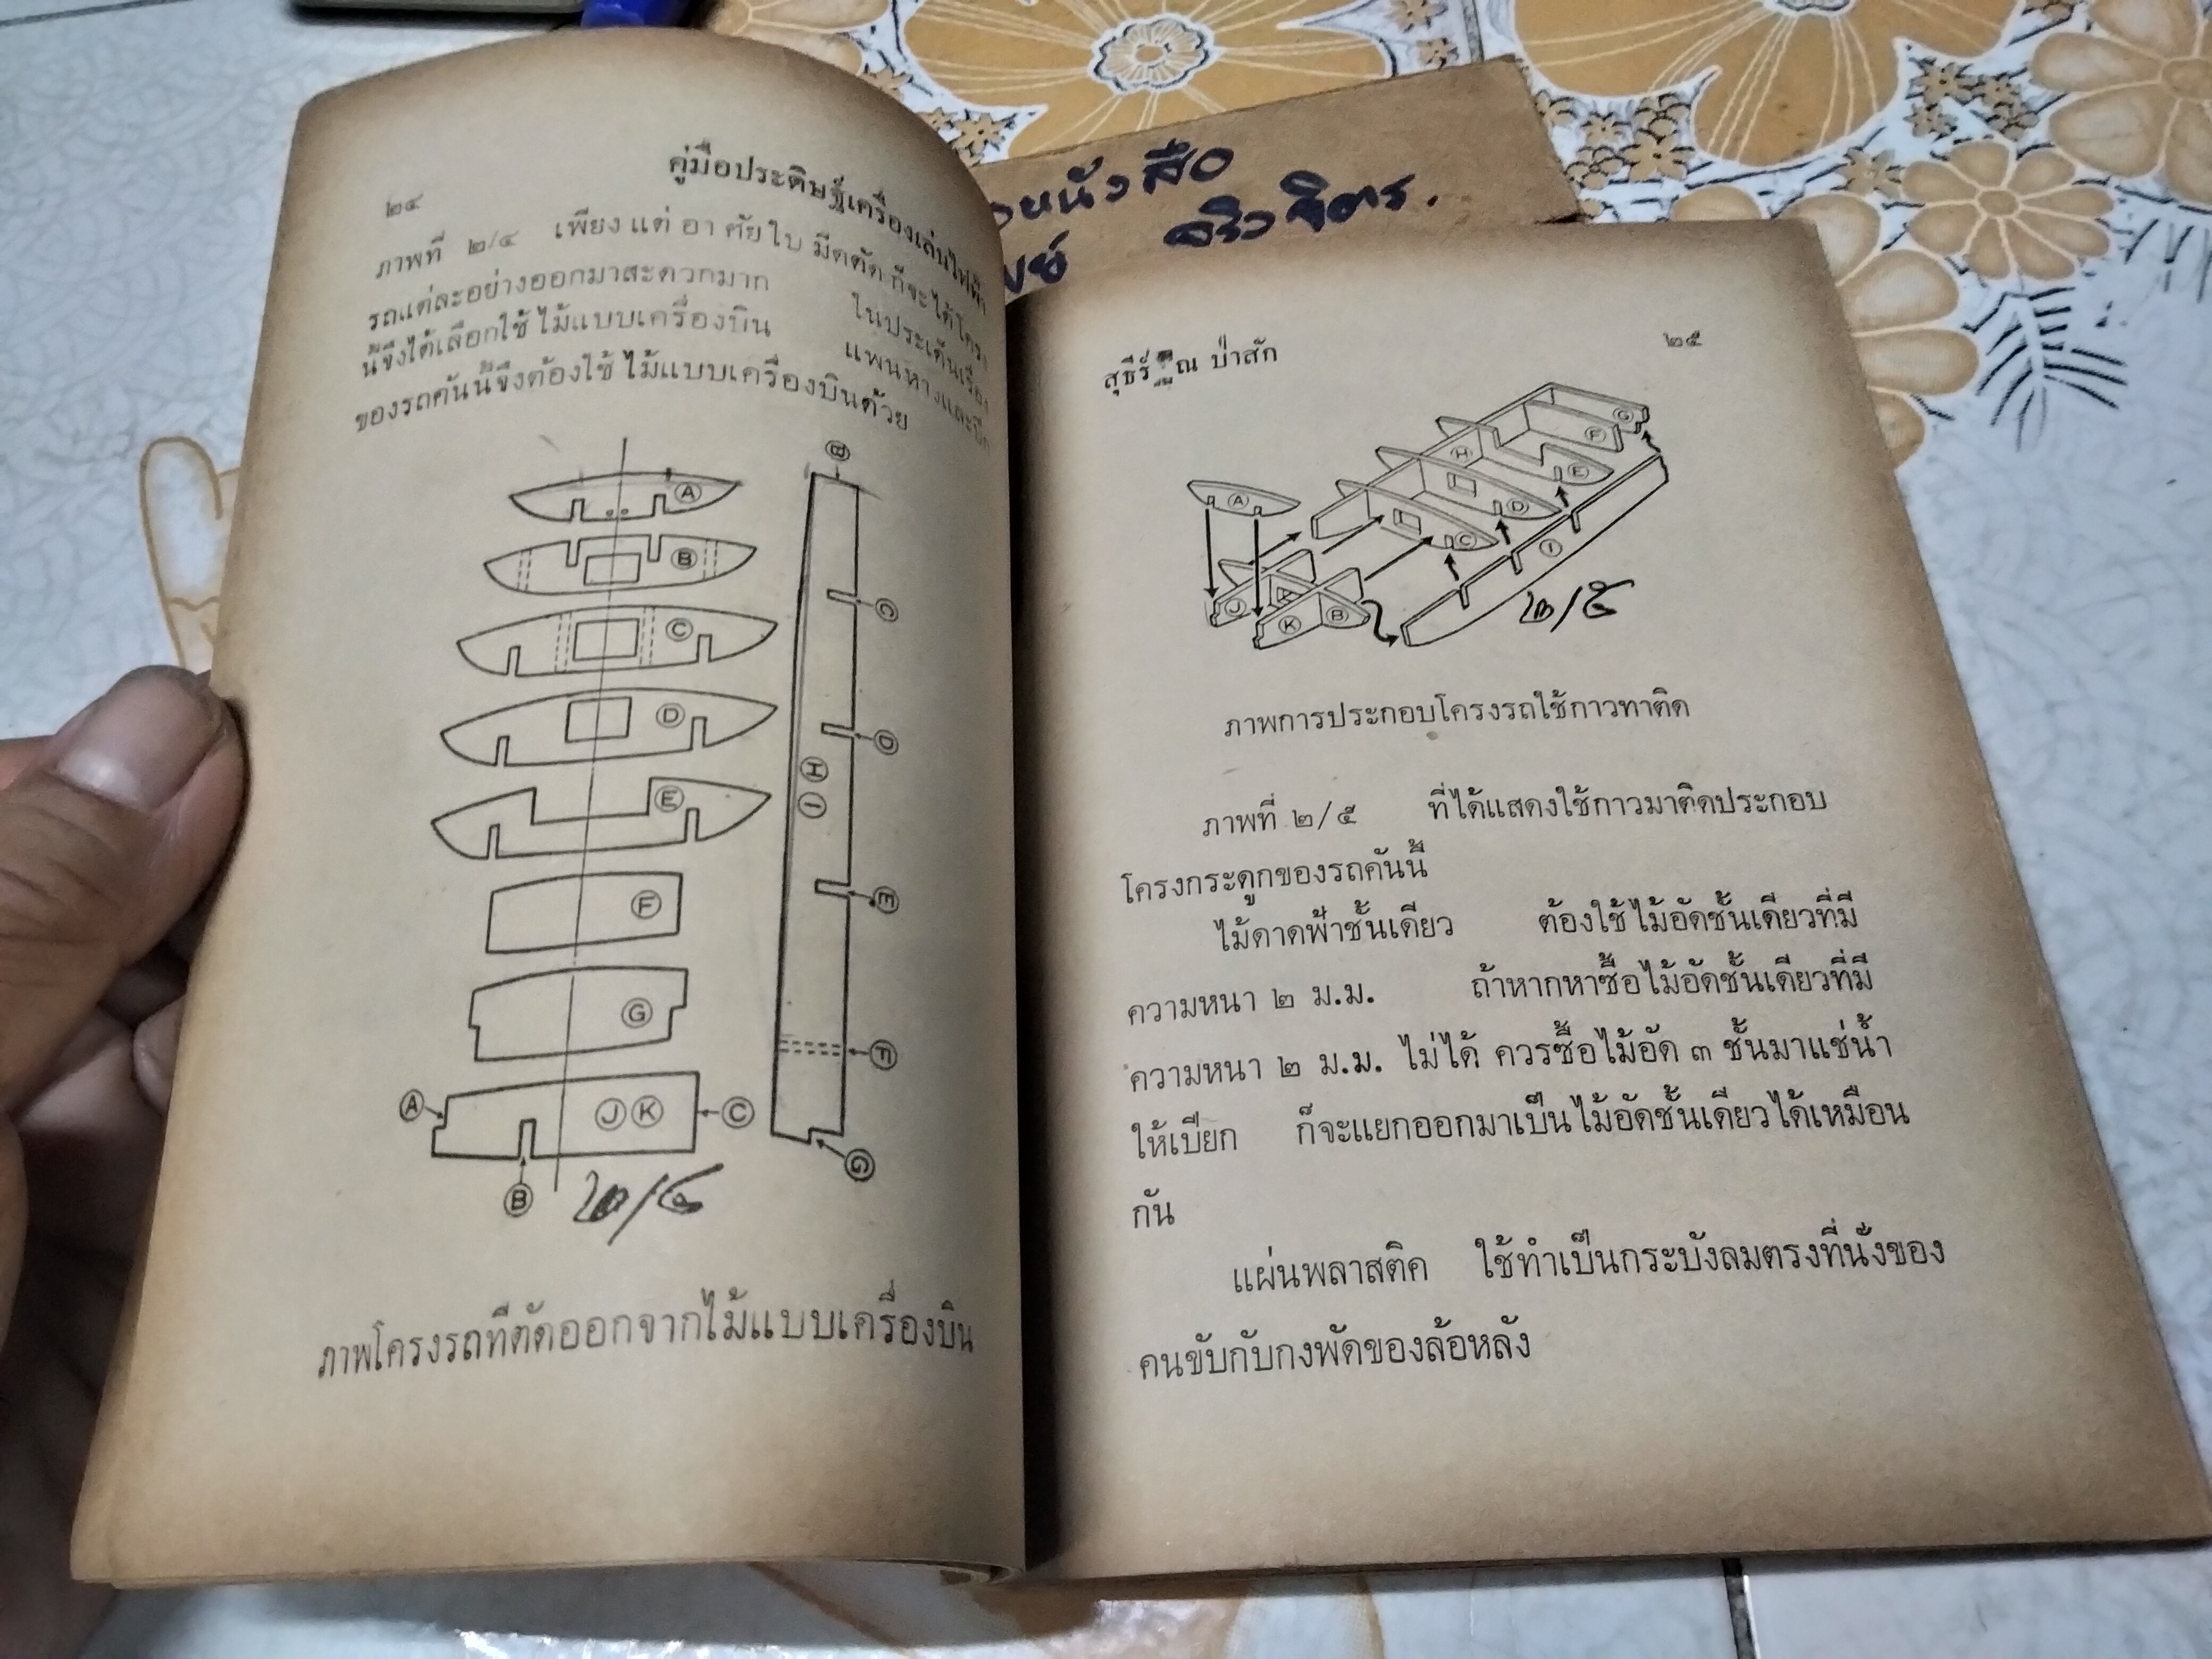 ๒๔
คู่มือประดิษฐ์เครื่องเล่นไฟฟ้า
ภาพที่ ๒/๔ เพียงแต่อาศัยใบมีดตัดก็จะได้โครง
รถแต่ละอย่างออกมาสะดวกมาก ในประเด็นเรื่อง
นี้จึงได้เลือกใช้ไม้แบบเครื่องบิน แพนหางและปีก
ของรถคันนี้จึงต้องใช้ไม้แบบเครื่องบินด้วย
A
B
C
D
E
F
G
A J K C
B
B
C
D
H I
E
F
G
๒/๔
ภาพโครงรถที่ตัดออกจากไม้แบบเครื่องบิน
หนังสือ
จิตร.
สุธีร์ ป่าสัก
๒๕
G
F
H
E
A
D
C
I
J
K B
๒/๕
ภาพการประกอบโครงรถใช้กาวทาติด
ภาพที่ ๒/๕ ที่ได้แสดงใช้กาวมาติดประกอบ
โครงกระดูกของรถคันนี้
ไม้ดาดฟ้าชั้นเดียว ต้องใช้ไม้อัดชั้นเดียวที่มี
ความหนา ๒ ม.ม. ถ้าหากหาซื้อไม้อัดชั้นเดียวที่มี
ความหนา ๒ ม.ม. ไม่ได้ ควรซื้อไม้อัด ๓ ชั้นมาแช่น้ำ
ให้เปียก ก็จะแยกออกมาเป็นไม้อัดชั้นเดียวได้เหมือน
กัน
แผ่นพลาสติค ใช้ทำเป็นกระบังลมตรงที่นั่งของ
คนขับกับกงพัดของล้อหลัง